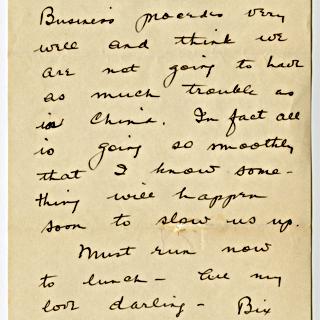 Business procedes very
well and think we
are not going to have
as much trouble as
in China. In fact all
is going so smoothly
that I know some-
thing will happen
soon to slow us up.
Must run now
to lunch - All my
love darling - Bix